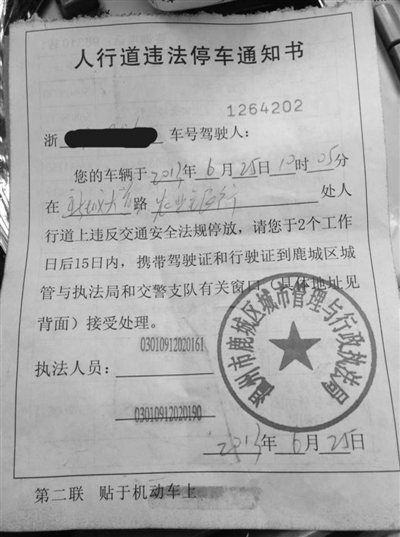 人行道违法停车通知书
1264202
浙 车号驾驶人：
您的车辆于2013年6月25日10时05分
在 路 处人
行道上违反交通安全法规停放，请您于2个工作
日后15日内，携带驾驶证和行驶证到鹿城区城
管与执法局和交警支队有关窗口（具体地址见
背面）接受处理。
03010912020161
执法人员：
03010912020190
温州市鹿城区城市管理与行政执法局
2013年6月25日
第二联 贴于机动车上